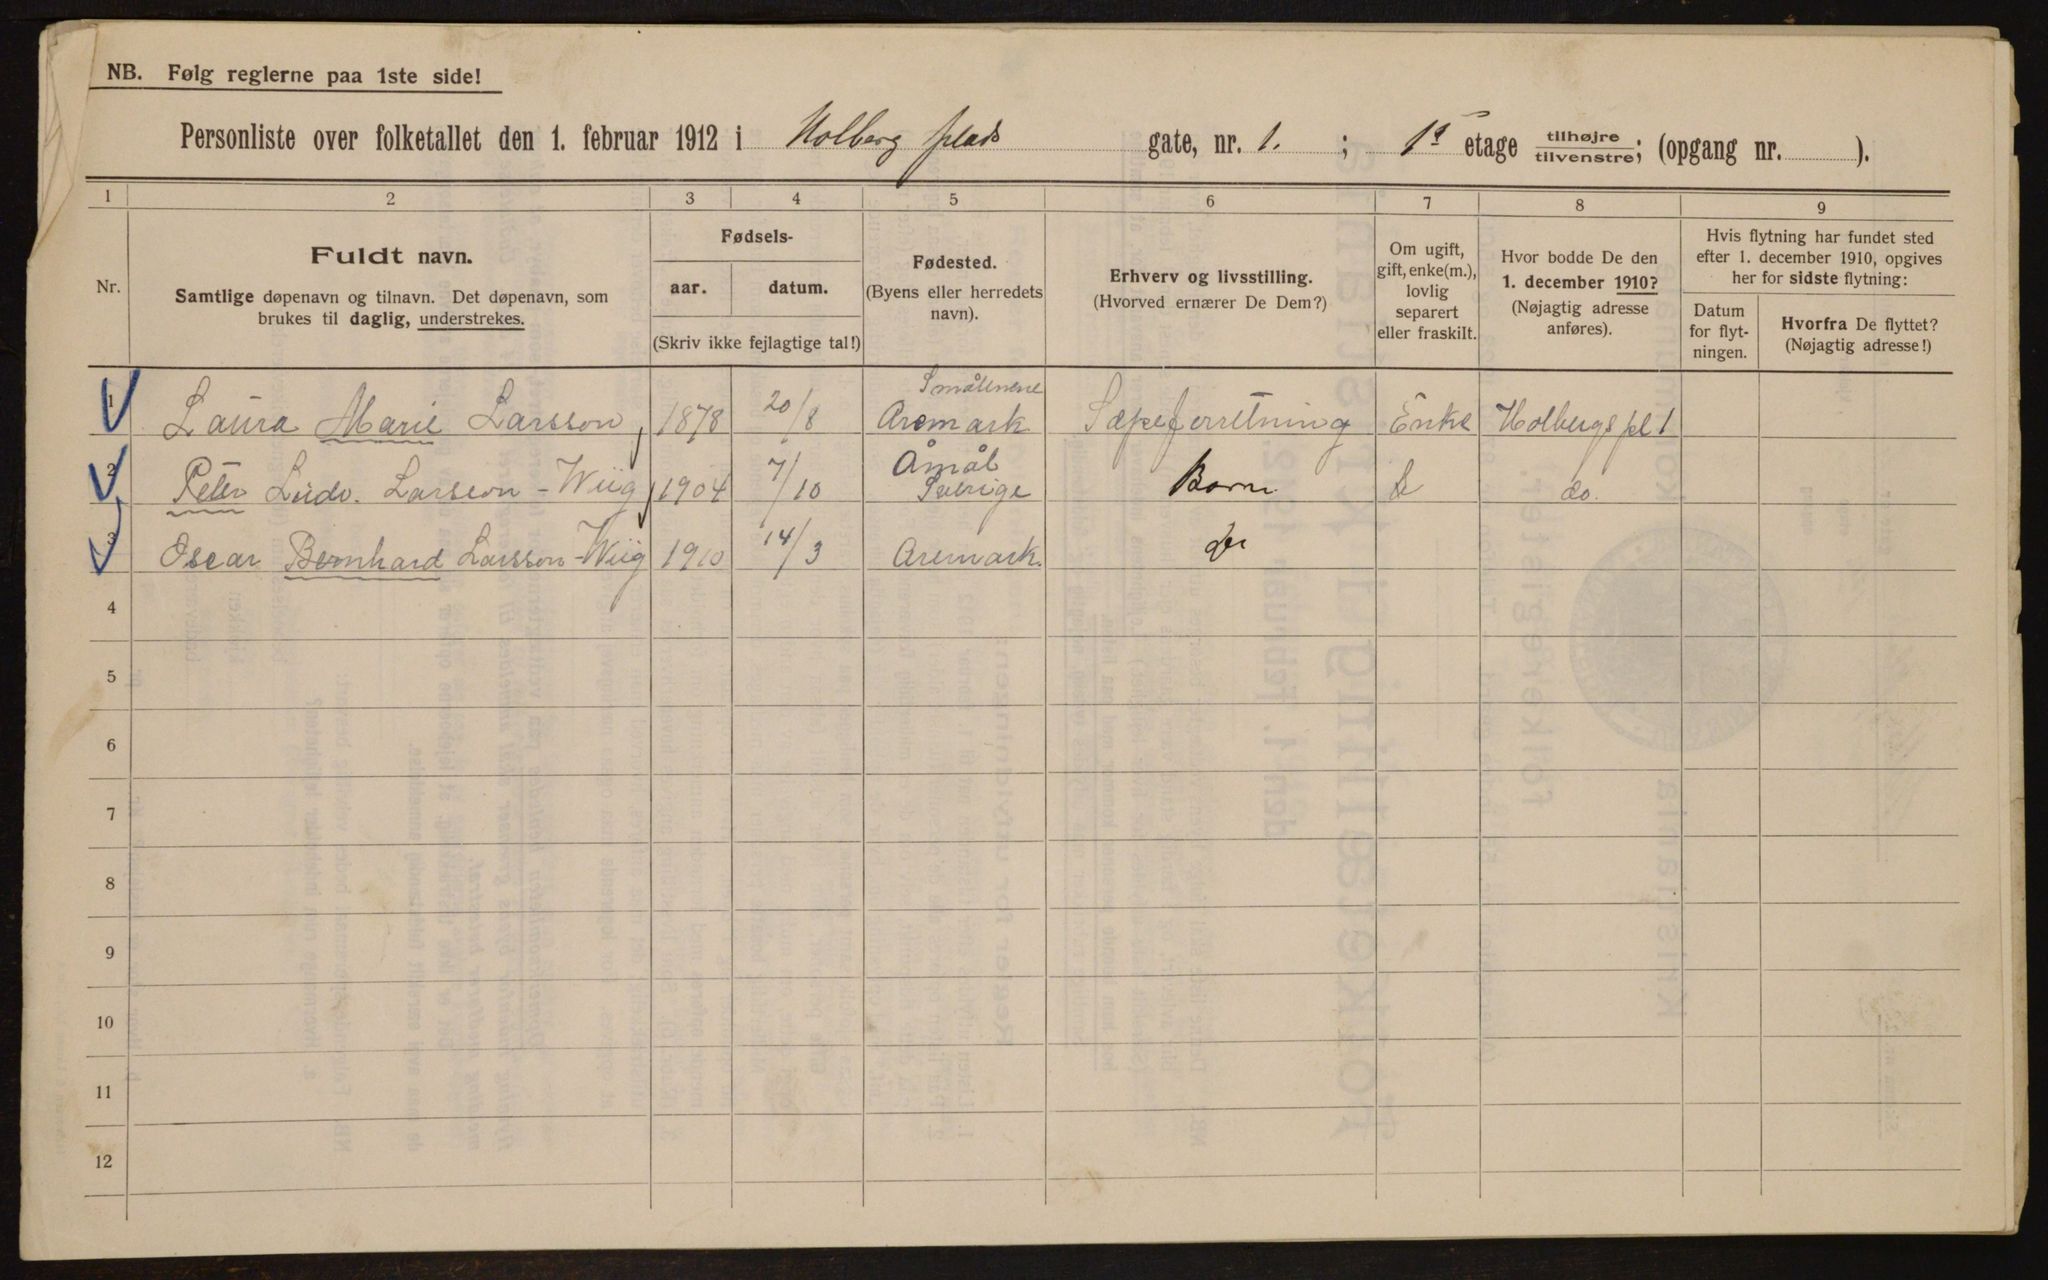 NB. Følg reglerne paa 1ste side!
Personliste over folketallet den 1. februar 1912 i Holberg plads gate, nr. 1. ; 1ª etage tilhøjre/tilvenstre; (opgang nr. ).
1 2 3 4 5 6 7 8 9
Nr.
Fuldt navn.
Samtlige døpenavn og tilnavn. Det døpenavn, som
brukes til daglig, understrekes.
Fødsels-
aar. datum.
(Skriv ikke fejlagtige tal!)
Fødested.
(Byens eller herredets
navn).
Erhverv og livsstilling.
(Hvorved ernærer De Dem?)
Om ugift,
gift, enke(m.),
lovlig
separert
eller fraskilt.
Hvor bodde De den
1. december 1910?
(Nøjagtig adresse
anføres).
Hvis flytning har fundet sted
efter 1. december 1910, opgives
her for sidste flytning:
Datum
for flyt-
ningen.
Hvorfra De flyttet?
(Nøjagtig adresse!)
Smålenene
1 Laura Marie Larsson, 1878 20/8 Aremark Sæpeforretning Enke Holbergs pl 1
Åmål
2 Peter Ludv. Larsson-Wiig, 1904 7/10 Sverige Barn do.
3 Oscar Bernhard Larsson-Wiig 1910 14/3 Aremark. do
4
5
6
7
8
9
10
11
12